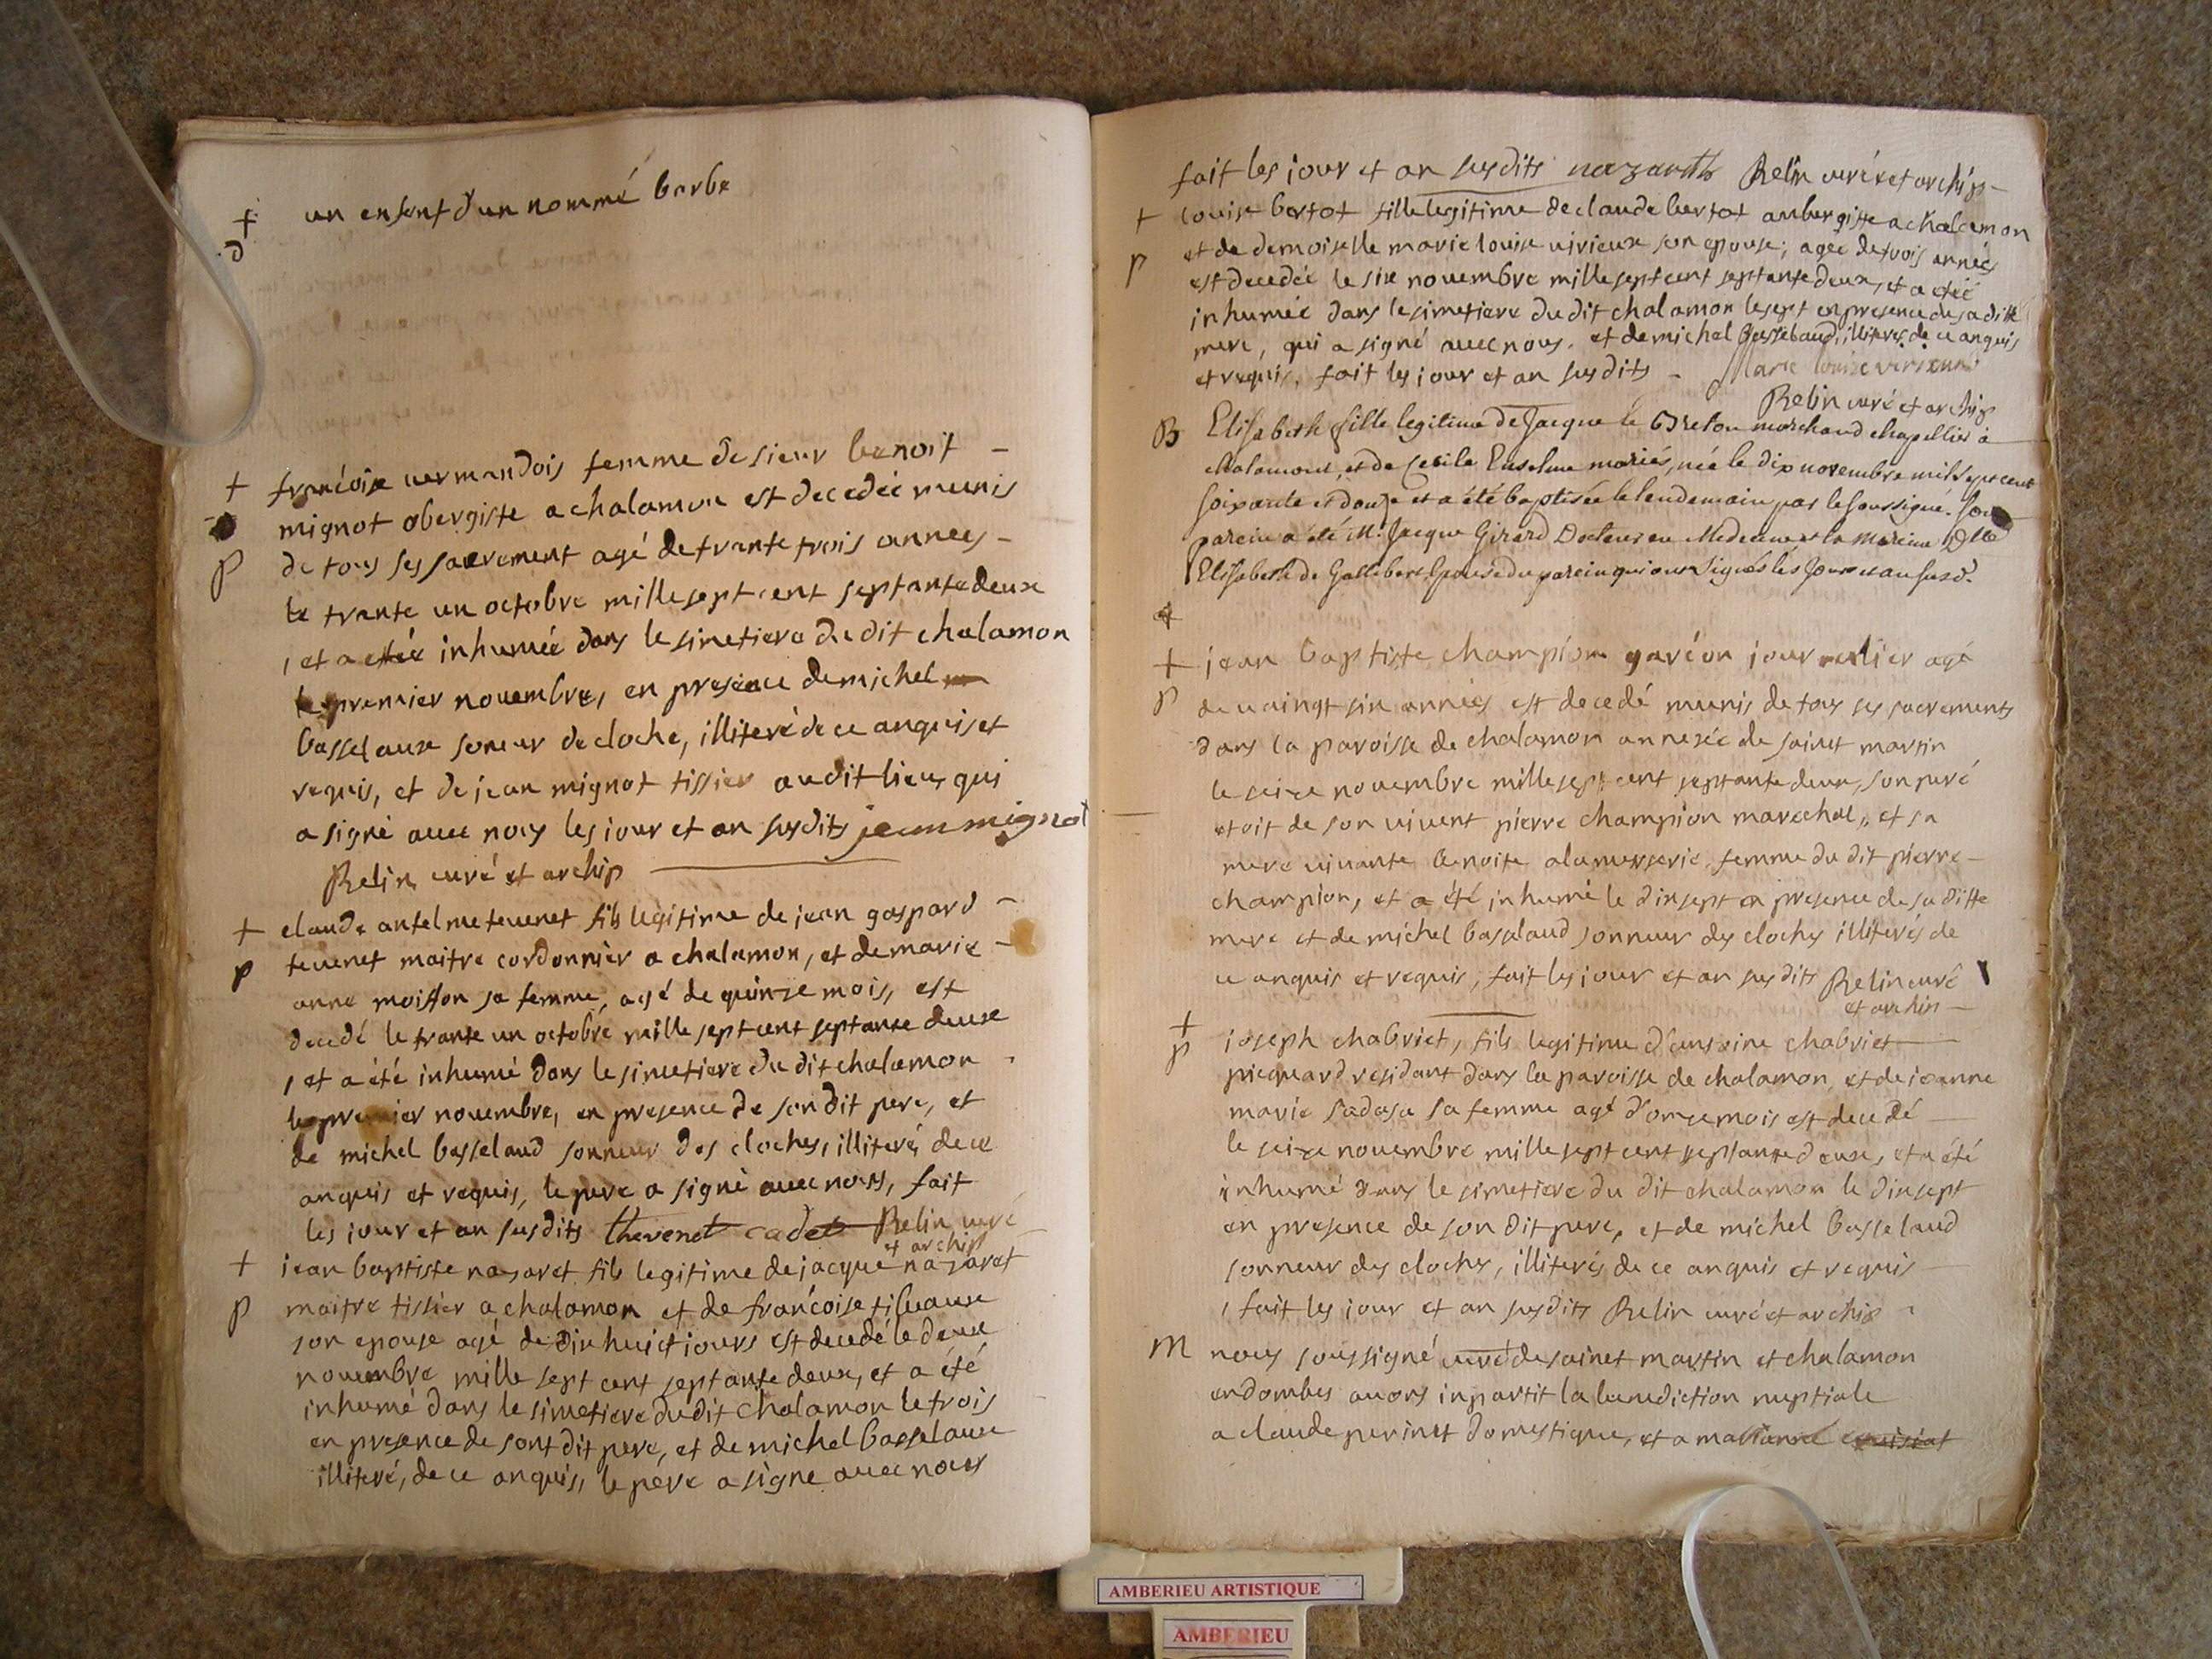 + un enfant d'un nommé barbe
d
+ francóise vermandois femme de sieur benoit
mignot obergiste a chalamon est decedée munis
p de tous ses sacrement agé de trante trois annees
le trante un octobre mille sept cent septante deux
, et a etée inhumée dans le simetiere du dit chalamon
le premier novembre, en presence de michel
basselaux soneur de cloche, illiteré de ce anquis et
requis, et de jean mignot tissier audit lieu, qui
a signé avec nous les jour et an susdits jean mignot
Relin curé et archip
+ claude antelme tevenet fils legitime de jean gaspard
p tevenet maitre cordonnier a chalamon, et de marie
anne moisson sa femme, agé de quinze mois, est
decedé le trante un octobre mille sept cent septante deux
, et a été inhumé dans le simetiere du dit chalamon
le premier novembre, en presence de son dit pere, et
de michel basselaud sonneur des cloches, illiterés de ce
anquis et requis, le pere a signé avec nous, fait
les jour et an susdits thevenet cadet Relin curé
et archip
+ jean baptiste nazaret fils legitime de jacque nazaret
p maitre tissier a chalamon et de francóise tilvaux
son epouse agé de dixhuict jours est decedé le deux
novembre mille sept cent septante deux, et a été
inhumé dans le simetiere du dit chalamon le trois
en presence de sont dit pere, et de michel basselaux
illiteré, de ce anquis, le pere a signe avec nous
fait les jour et an susdits nazareth Relin curé et archip
+ louise bertot fille legitime de claude bertot aubergiste a chalamon
et de demoiselle marie louise virieux son epouse, agee de trois années
p est decedée le six novembre mille sept cent septante deux, et a etée
inhumée dans le simetiere du dit chalamon le sept en presence de sa ditte
mere, qui a signé avec nous. et de michel basselaud, illiterés de ce anquis
et requis, fait les jour et an susdits Marie louise
Relin curé et archip
B Elisabeth fille legitime de Jacque le Breton marchand chapellier à
chalamont, et de Cecile Enselme mariés, née le dix novembre mil sept cent
soixante et douze et a été baptisée le lendemain par le soussigné. son
parein a été Mr. Jacque Girard Docteur en Medecine et la mareine Dlle
Elisabeth de Gallebert Epouse du parein qui ont signés les jour et an susd.
+ jean baptiste champion garcón jour agé
p de vaingt six années est decedé munis de tous ses sacrements
dans la paroisse de chalamon annexée de sainct martin
le seize novembre mille sept cent septante deux, son peré
etoit de son vivent pierre champion marechal, et sa
mere vivante benoite femme du dit pierre
champion, et a été inhumé le dixsept en presence de sa ditte
mere et de michel basselaud sonneur des cloches illiterés de
ce anquis et requis, fait les jour et an susdits Relin curé
et archip
+ joseph chabriet, fils legitime d'antoine chabriet
p picquard residant dans la paroisse de chalamon, et de jeanne
marie sa femme agé d'onze mois est decedé
le seize novembre mille sept cent septante deux, et a été
inhumé dans le simetiere du dit chalamon le dixsept
en presence de son dit pere, et de michel basselaud
sonneur des cloches, illiterés de ce anquis et requis
, fait les jour et an susdits Relin curé et archip
M nous soussigné curé de sainct martin et chalamon
en dombes avons inpartit la benediction nuptiale
a claude perinet domestique, et a marianne
AMBERIEU ARTISTIQUE
AMBERIEU